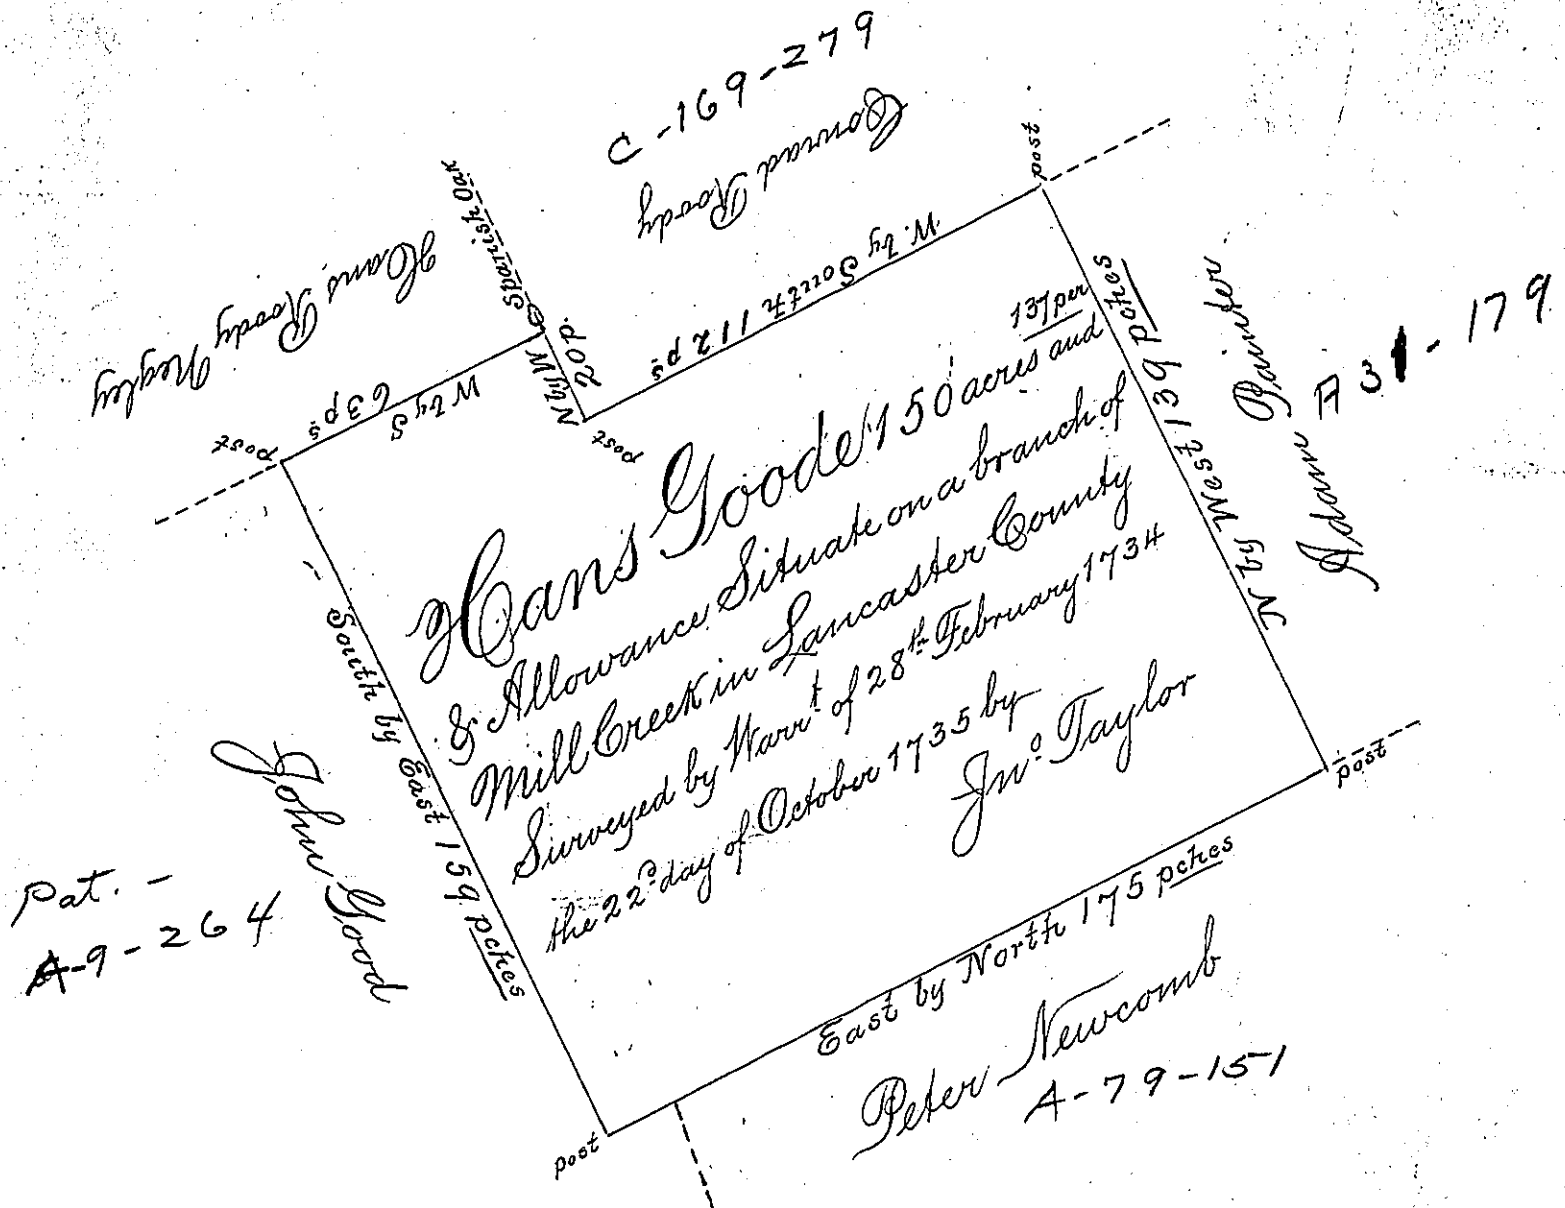 C-169-279
Conrad Roody
post
Spanish Oak
Hans Roody Negley
W by S 63 pˢ
N by W 20 p.
post
W. by South 112 pˢ
post
N by West 139 pches
Adam Painter
A 31-179
Hans Goode 150 acres and 137 per
& Allowance Situate on a branch of
Mill Creek in Lancaster County
Surveyed by Warrᵗ of 28ᵗʰ February 1734
the 22ᵈ day of October 1735 by
Jnᵒ Taylor
South by East 159 pches
John Good
Pat. -
A-9-264
post
East by North 175 pches
post
Peter Newcomb
A-79-151
post